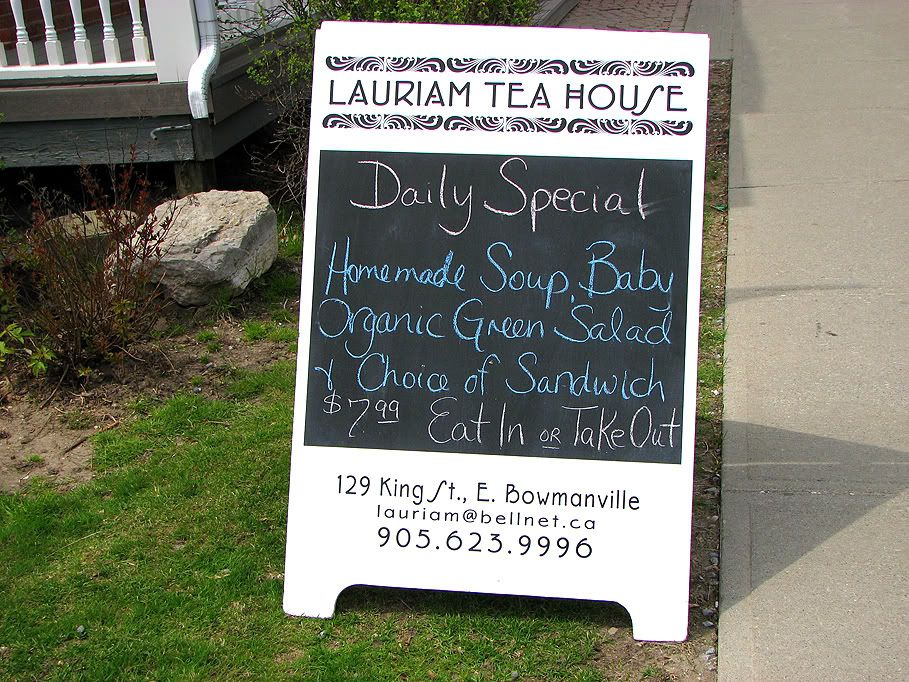 LAURIAM TEA HOUSE
Daily Special
Homemade Soup, Baby
Organic Green Salad
& Choice of Sandwich
$7.99 Eat In OR Take Out
129 King St., E. Bowmanville
lauriam@bellnet.ca
905.623.9996